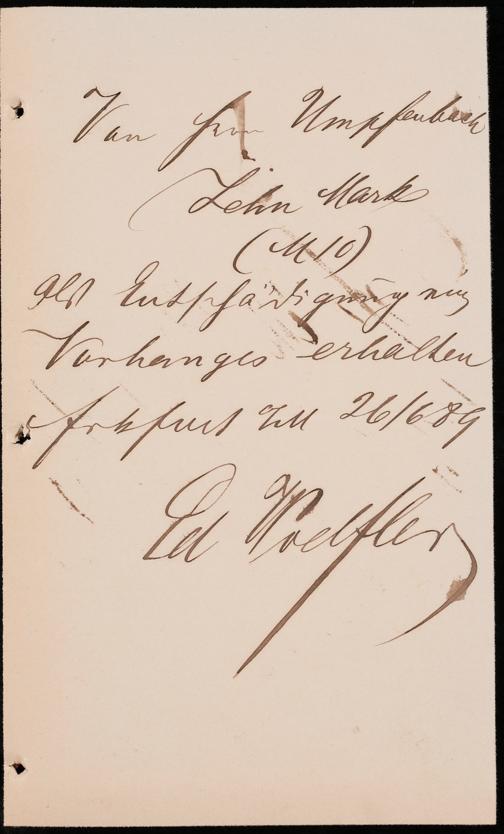 Von Herrn Umpfenbach
Zehn Mark
(M 10)
als Entschädigung eines
Vorhanges erhalten
Frkfurt 26/6 89
Ed Woelfler